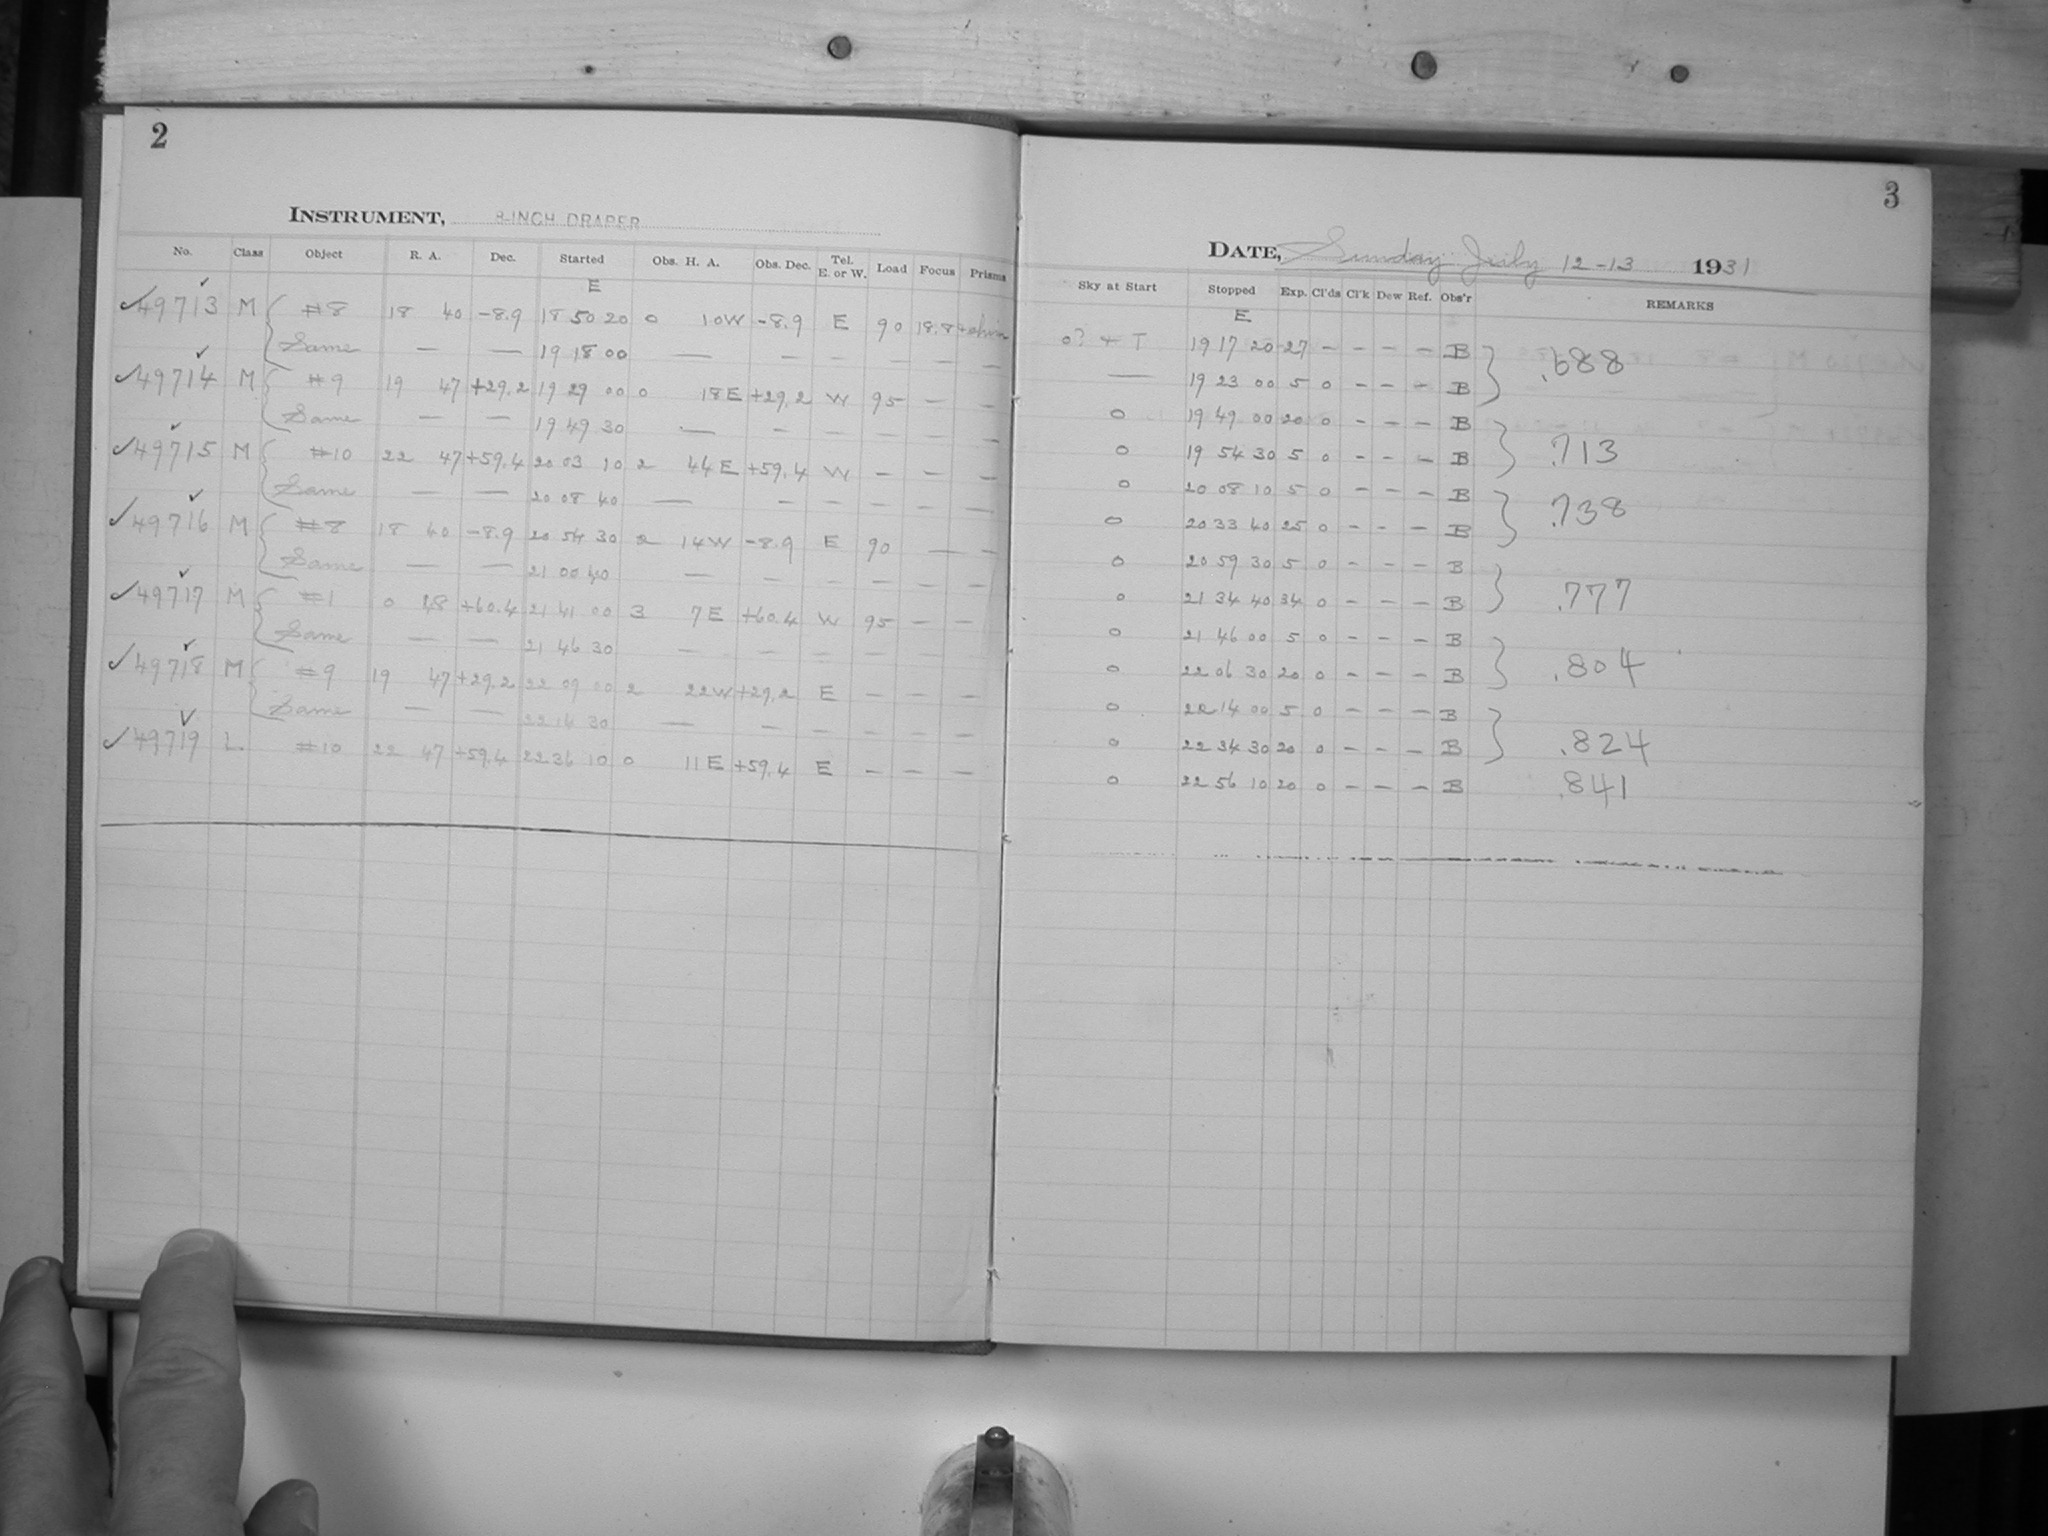 2
INSTRUMENT, 8-INCH DRAPER
No. Class Object R. A. Dec. Started Obs. H. A. Obs. Dec. Tel. E. or W. Load Focus Prisms
E
✓49713 M #8 18 40 -8.9 18 50 20 0 10W -8.9 E 90 18.8
Same — — 19 18 00 — — — — — —
✓49714 M #9 19 47 +29.2 19 29 00 0 18E +29.2 W 95 — —
Same — — 19 49 30 — — — — — —
✓49715 M #10 22 47 +59.4 20 03 10 2 44E +59.4 W — — —
Same — — 20 08 40 — — — — — —
✓49716 M #8 18 40 -8.9 20 54 30 2 14W -8.9 E 90 — —
Same — — 21 00 40 — — — — — —
✓49717 M #1 0 48 +60.4 21 41 00 3 7E +60.4 W 95 — —
Same — — 21 46 30 — — — — — —
✓49718 M #9 19 47 +29.2 22 09 00 2 22W +29.2 E — — —
Same — — 22 14 30 — — — — — —
✓49719 L #10 22 47 +59.4 22 36 10 0 11E +59.4 E — — —
3
DATE, Sunday July 12-13 1931
Sky at Start Stopped Exp. Cl'ds Cl'k Dew Ref. Obs'r REMARKS
E
0? + T 19 17 20 27 — — — — B .688
— 19 23 00 5 0 — — — B
0 19 49 00 20 0 — — — B
0 19 54 30 5 0 — — — B .713
0 20 08 10 5 0 — — — B
0 20 33 40 25 0 — — — B .738
0 20 59 30 5 0 — — — B
0 21 34 40 34 0 — — — B .777
0 21 46 00 5 0 — — — B
0 22 06 30 20 0 — — — B .804
0 22 14 00 5 0 — — — B
0 22 34 30 20 0 — — — B .824
0 22 56 10 20 0 — — — B .841